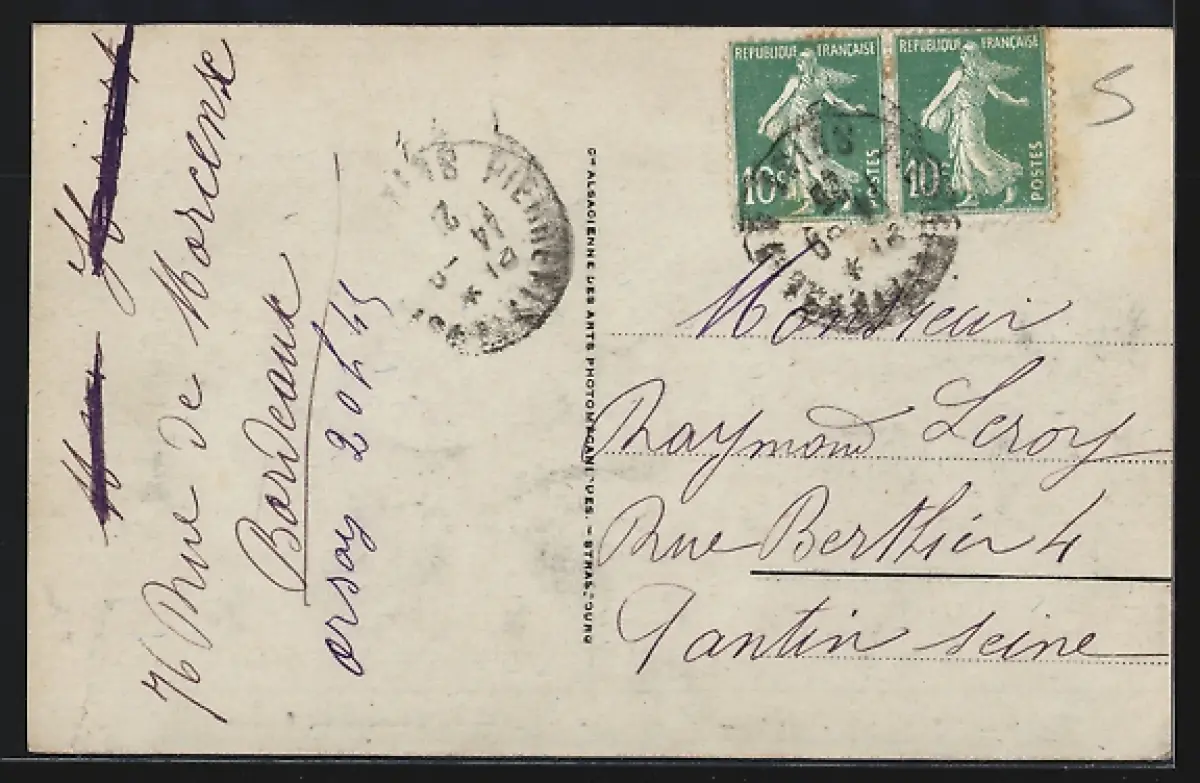 76 Rue de Morcense
Bordeaux
orsay 20h45
PIERREFITTE
14
2
Cie ALSACIENNE DES ARTS PHOTOMÉCANIQUES. - STRASBOURG
REPUBLIQUE FRANÇAISE
10c POSTES
REPUBLIQUE FRANÇAISE
10c POSTES
S
Monsieur
Raymond Leroy
Rue Berthier 4
Pantin Seine